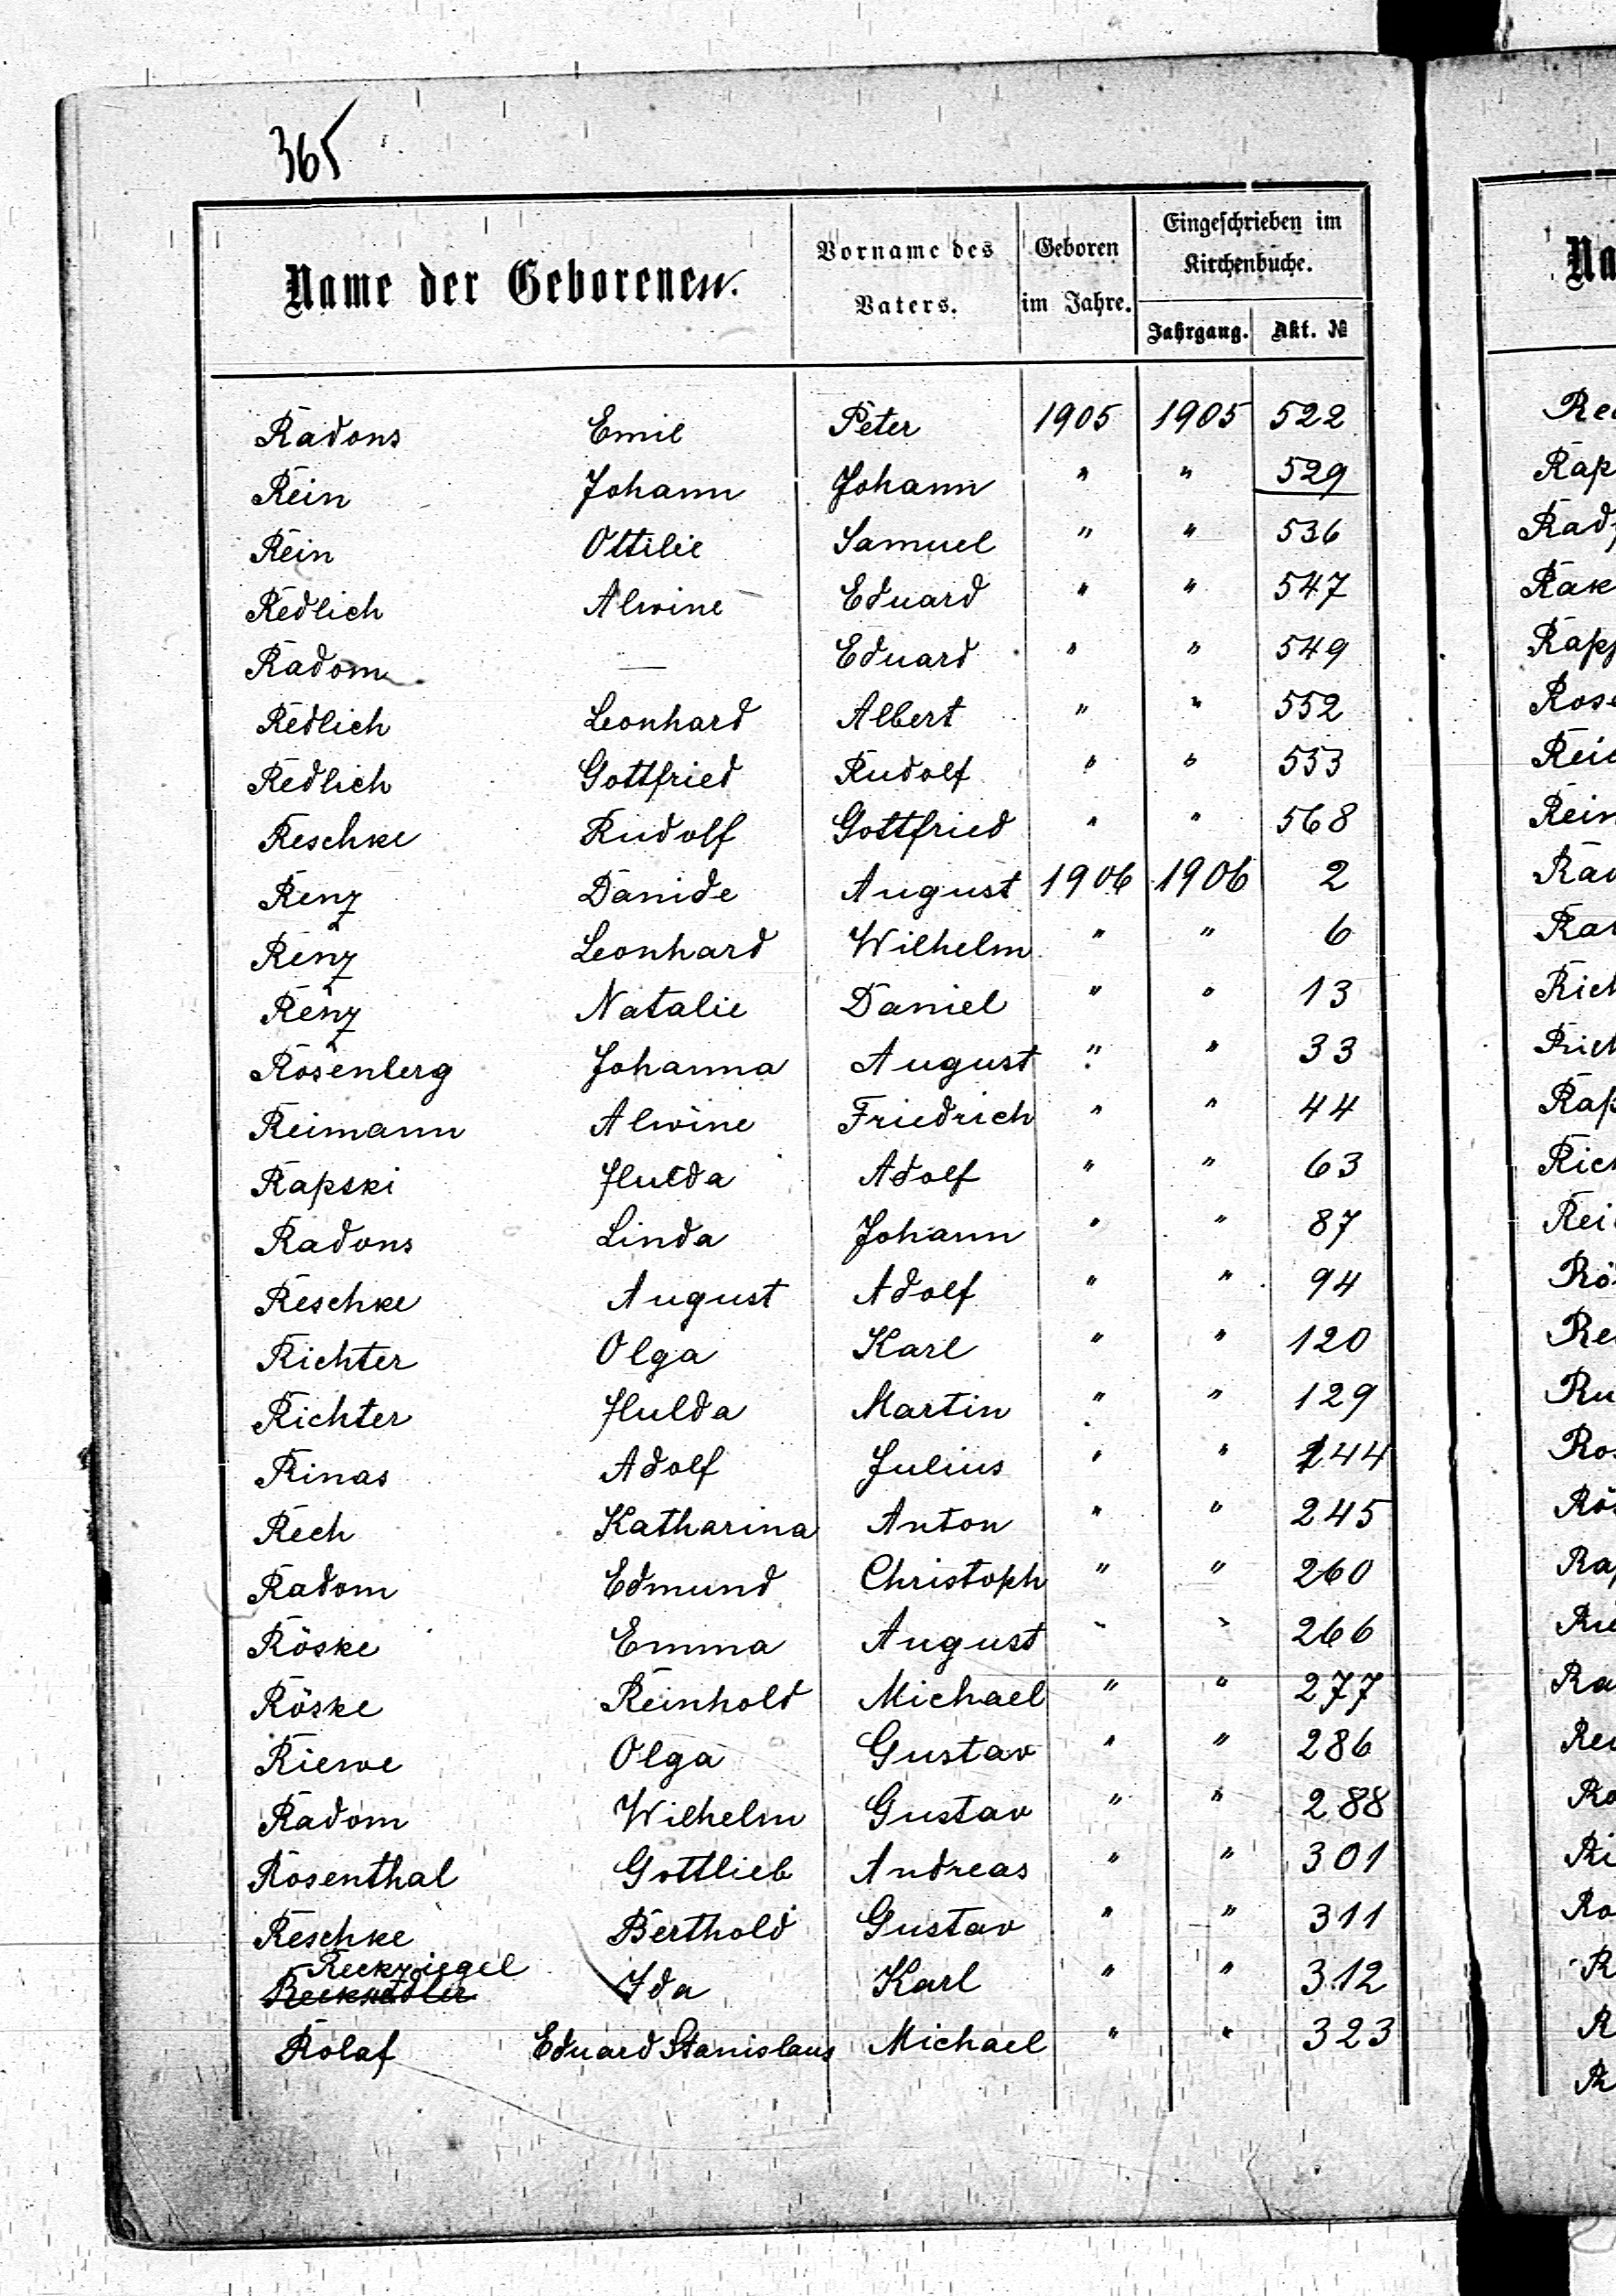 365
Name der Geborenen.
Vorname des Vaters.
Geboren im Jahre.
Eingeschrieben im Kirchenbuche.
Jahrgang. Akt. №
Radons Emil Peter 1905 1905 522
Rein Johann Johann " " 529
Rein Ottilie Samuel " " 536
Redlich Alwine Eduard " " 547
Radom — Eduard " " 549
Redlich Leonhard Albert " " 552
Redlich Gottfried Rudolf " " 553
Reschke Rudolf Gottfried " " 568
Renz Danide August 1906 1906 2
Renz Leonhard Wilhelm " " 6
Renz Natalie Daniel " " 13
Rosenberg Johanna August " " 33
Reimann Alwine Friedrich " " 44
Rapski Hulda Adolf " " 63
Radons Linda Johann " " 87
Reschke August Adolf " " 94
Richter Olga Karl " " 120
Richter Hulda Martin " " 129
Rinas Adolf Julius " " 244
Rech Katharina Anton " " 245
Radom Edmund Christoph " " 260
Röske Emma August " " 266
Röske Reinhold Michael " " 277
Riewe Olga Gustav " " 286
Radom Wilhelm Gustav " " 288
Rosenthal Gottlieb Andreas " " 301
Reschke Berthold Gustav " " 311
Reckziegel
Ida Karl " " 312
Rolaf Eduard Stanislaus Michael " " 323